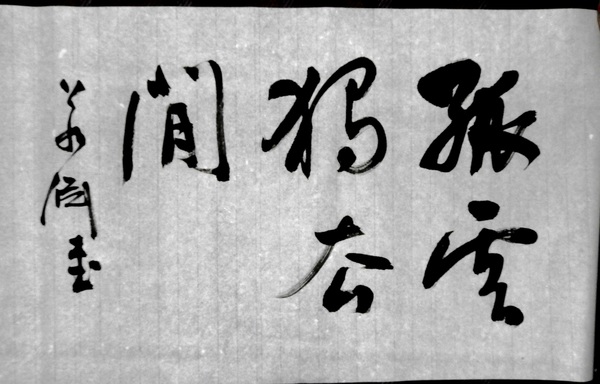 孤雲
獨去
閒